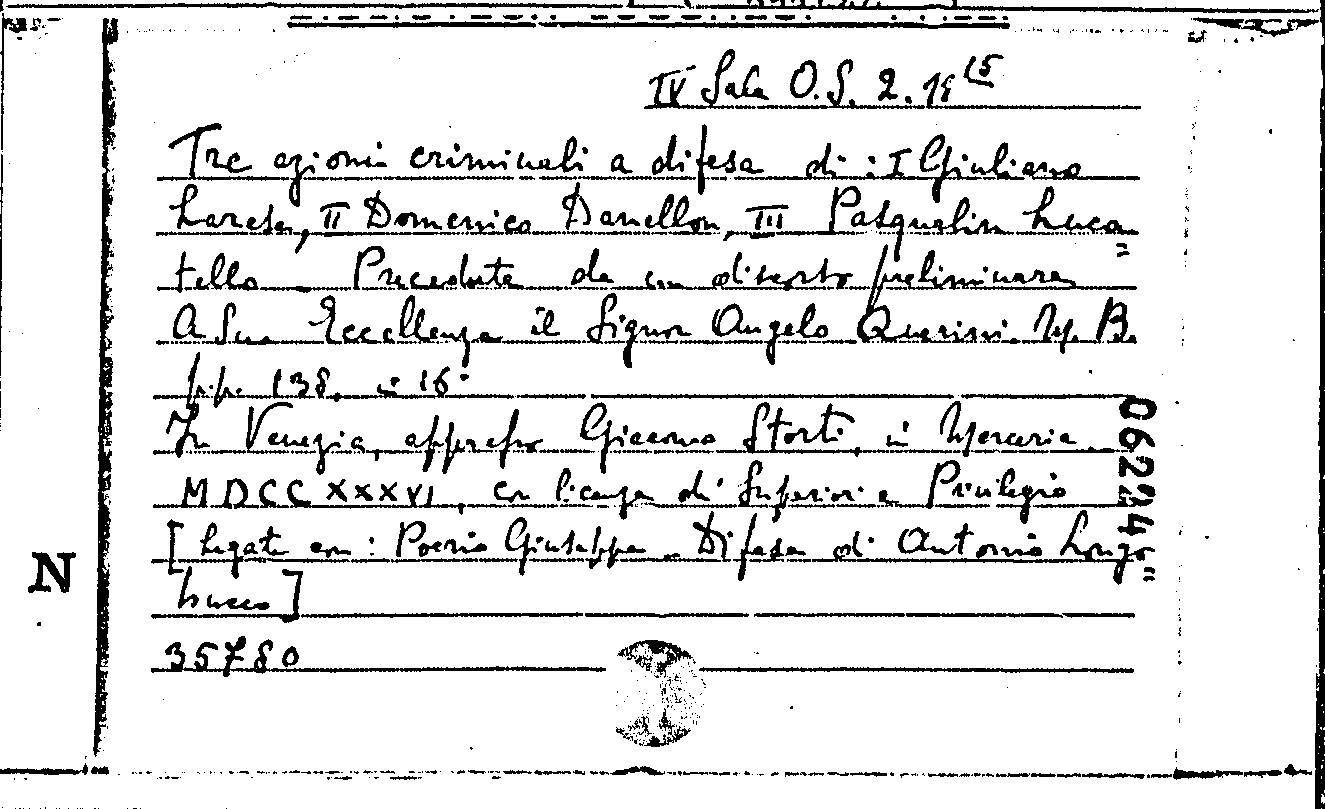 IV Sala O.S. 2. 18 15
Tre azioni criminali a difesa di: I Giuliano
Laresa, II Domenico Danellon, III Pasqualin Luca=
tello - Precedute da un discorso preliminare
A Sua Eccellenza il Signor Angelo Querini. N. B.
pp. 138. in 16°
In Venezia, appresso Giacomo Storti, in Merceria
MDCCXXXVI, con licenza di Superiori e Privilegio
[legato con: Poerio Giuseppe - Difesa di Antonio Longo=
bucco]
35780
N
06224